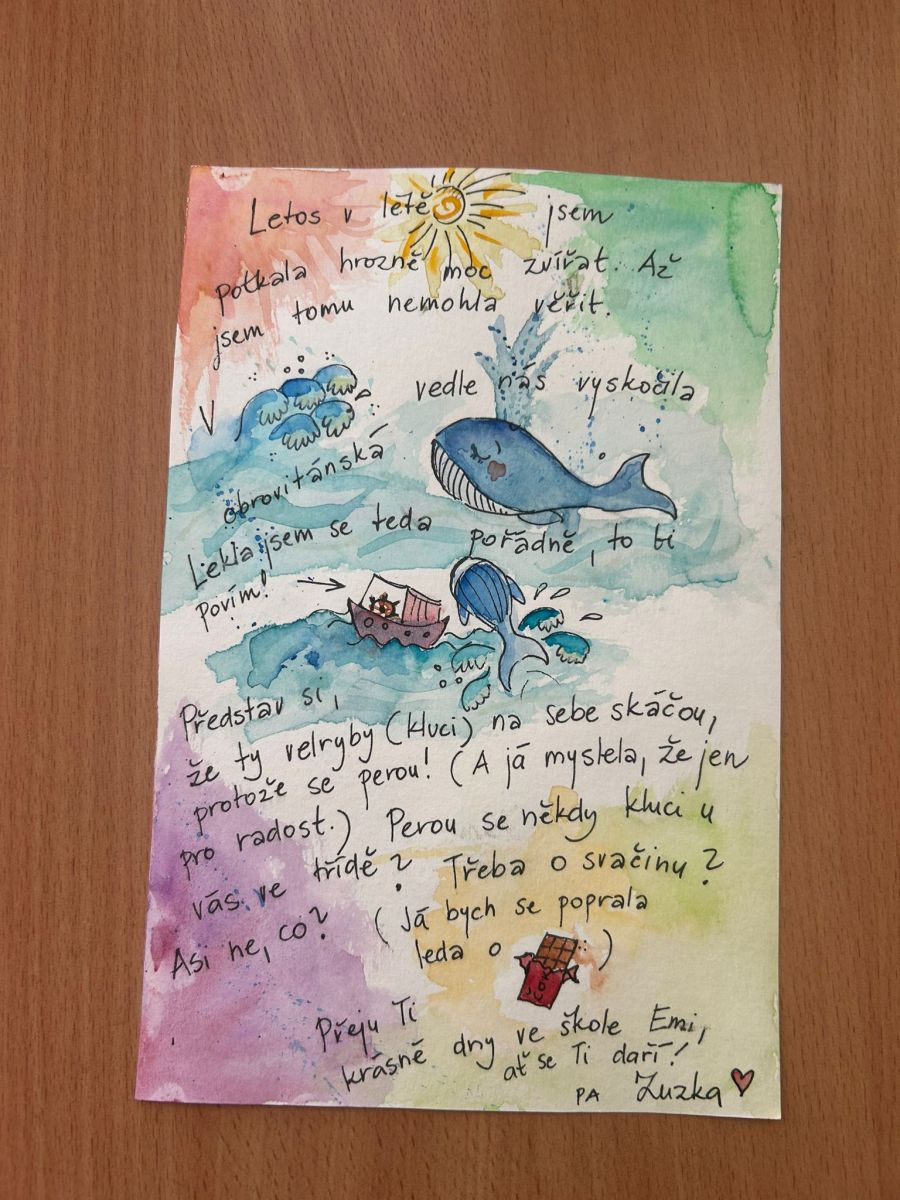 Letos v létě jsem
potkala hrozně moc zvířat. Až
jsem tomu nemohla věřit.
V vedle nás vyskočila
obrovitánská
Lekla jsem se teda pořádně, to ti
povím!
Představ si,
že ty velryby (kluci) na sebe skáčou,
protože se perou! (A já myslela, že jen
pro radost.) Perou se někdy kluci u
vás ve třídě? Třeba o svačinu?
Asi ne, co? (Já bych se poprala
leda o )
Přeju Ti
krásné dny ve škole Emi,
ať se Ti daří!
PA Zuzka